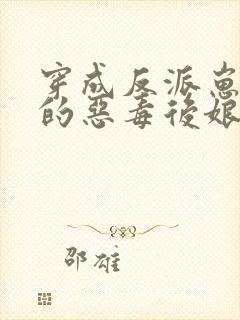 穿成反派崽崽
的惡毒後娘
邵雄